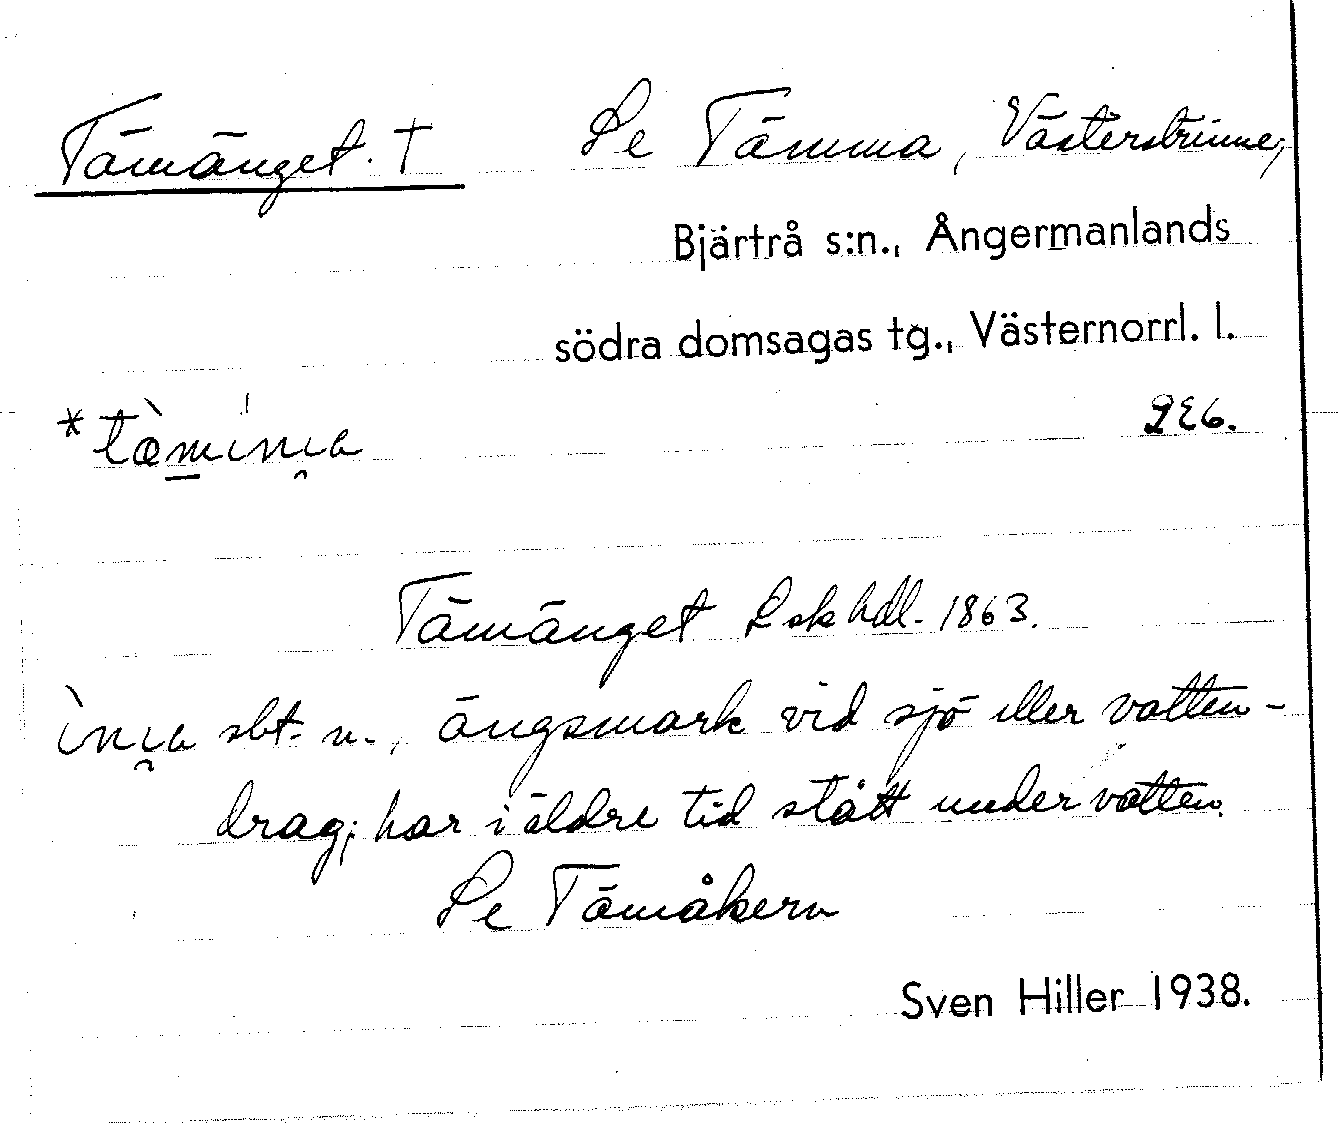 Tämänget. † Se Tämma, Västerstrinne,
Bjärtrå s:n., Ångermanlands
södra domsagas tg., Västernorrl. l.
*tæ̀minı̯a
Tämänget Lskhdl. 1863.
ìnı̯a sbt. n., ängsmark vid sjö eller vatten-
drag; har i äldre tid stått under vatten.
Se Tämåkern
Sven Hiller 1938.